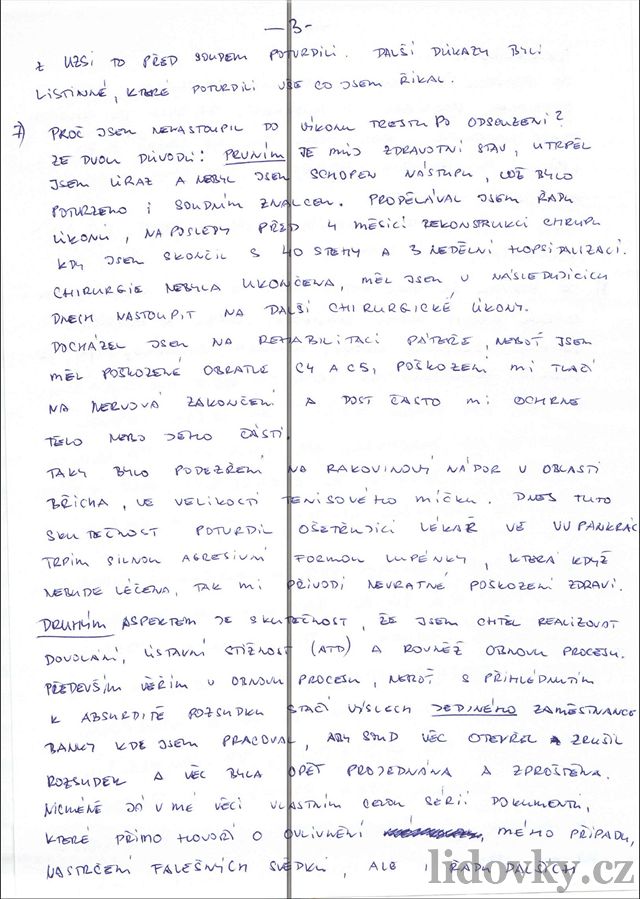 — 3 -
Z UZSI TO PŘED SOUDEM POTVRDILI. DALŠÍ DŮKAZY BYLI
LISTINNÉ, KTERÉ POTVRDILI VŠE CO JSEM ŘÍKAL.
7) PROČ JSEM NENASTOUPIL DO VÝKONU TRESTU PO ODSOUZENÍ?
ZE DVOU DŮVODŮ: PRVNÍM JE MŮJ ZDRAVOTNÍ STAV, UTRPĚL
JSEM ÚRAZ A NEBYL JSEM SCHOPEN NÁSTUPU, COŽ BYLO
POTVRZENO I SOUDNÍM ZNALCEM. PRODĚLÁVAL JSEM ŘADU
ÚKONŮ, NAPOSLEDY PŘED 4 MĚSÍCI REKONSTRUKCI CHRUPU
KDY JSEM SKONČIL S 40 STEHY A 3 NEDĚLNÍ HOPSITALIZACÍ.
CHIRURGIE NEBYLA UKONČENA, MĚL JSEM V NÁSLEDUJÍCÍCH
DNECH NASTOUPIT NA DALŠÍ CHIRURGICKÉ ÚKONY.
DOCHÁZEL JSEM NA REHABILITACI PÁTEŘE, NEBOŤ JSEM
MĚL POŠKOZENÉ OBRATLE C4 A C5, POŠKOZENÍ MI TLAČÍ
NA NERVOVÁ ZAKONČENÍ A DOST ČASTO MI OCHRNE
TĚLO NEBO JEHO ČÁSTI.
TAKY BYLO PODEZŘENÍ NA RAKOVINOVÝ NÁDOR V OBLASTI
BŘICHA, VE VELIKOSTI TENISOVÉHO MÍČKU. DNES TUTO
SKUTEČNOST POTVRDIL OŠETŘUJÍCÍ LÉKAŘ VE VV PANKRÁC
TRPÍM SILNOU AGRESIVNÍ FORMOU LUPÉNKY, KTERÁ KDYŽ
NEBUDE LÉČENA, TAK MI PŘIVODÍ NEVRATNÉ POŠKOZENÍ ZDRAVÍ.
DRUHÝM ASPEKTEM JE SKUTEČNOST, ŽE JSEM CHTĚL REALIZOVAT
DOVOLÁNÍ, ÚSTAVNÍ STÍŽNOST (ATD) A ROVNĚŽ OBNOVU PROCESU.
PŘEDEVŠÍM VĚŘÍM V OBNOVU PROCESU, NEBOŤ S PŘIHLÉDNUTÍM
K ABSURDITĚ ROZSUDKU STAČÍ VÝSLECH JEDINÉHO ZAMĚSTNANCE
BANKY KDE JSEM PRACOVAL, ABY SOUD VĚC OTEVŘEL A ZRUŠIL
ROZSUDEK A VĚC BYLA OPĚT PROJEDNÁNA A ZPROŠTĚNA.
NICMÉNĚ JÁ V MÉ VĚCI VLASTNÍM CELOU SÉRII DOKUMENTŮ,
KTERÉ PŘÍMO HOVOŘÍ O OVLIVNĚNÍ MÉHO PŘÍPADU,
NASTRČENÍ FALEŠNÝCH SVĚDKŮ, ALE I ŘADU DALŠÍCH
lidovky.cz